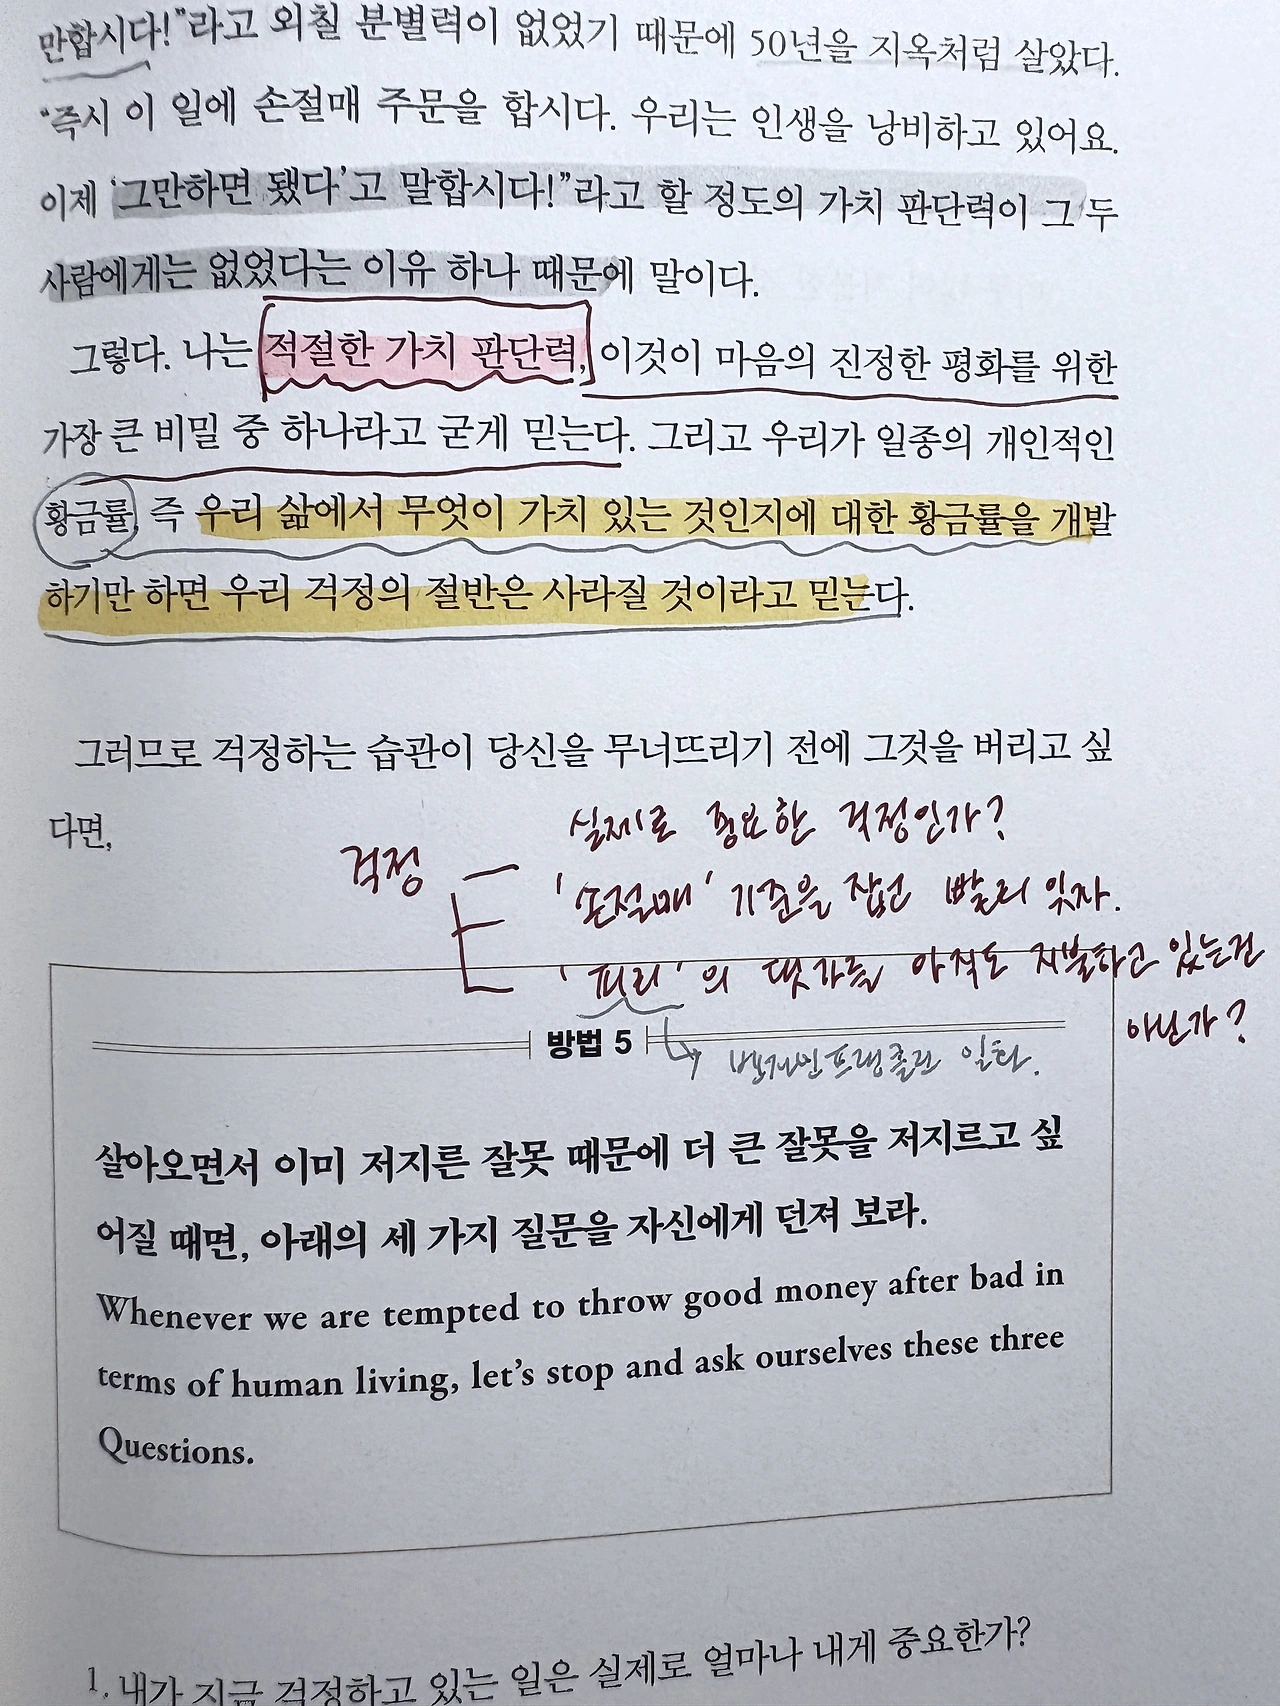 만합시다!”라고 외칠 분별력이 없었기 때문에 50년을 지옥처럼 살았다.
“즉시 이 일에 손절매 주문을 합시다. 우리는 인생을 낭비하고 있어요.
이제 ‘그만하면 됐다’고 말합시다!”라고 할 정도의 가치 판단력이 그 두
사람에게는 없었다는 이유 하나 때문에 말이다.
그렇다. 나는 적절한 가치 판단력, 이것이 마음의 진정한 평화를 위한
가장 큰 비밀 중 하나라고 굳게 믿는다. 그리고 우리가 일종의 개인적인
황금률, 즉 우리 삶에서 무엇이 가치 있는 것인지에 대한 황금률을 개발
하기만 하면 우리 걱정의 절반은 사라질 것이라고 믿는다.
그러므로 걱정하는 습관이 당신을 무너뜨리기 전에 그것을 버리고 싶
다면,
걱정
실제로 중요한 걱정인가?
'손절매' 기준을 잡고 빨리 잊자.
'피리'의 댓가를 아직도 지불하고 있는건
아닌가?
방법 5
벤자민프랭클린 일화.
살아오면서 이미 저지른 잘못 때문에 더 큰 잘못을 저지르고 싶
어질 때면, 아래의 세 가지 질문을 자신에게 던져 보라.
Whenever we are tempted to throw good money after bad in
terms of human living, let’s stop and ask ourselves these three
Questions.
1. 내가 지금 걱정하고 있는 일은 실제로 얼마나 내게 중요한가?